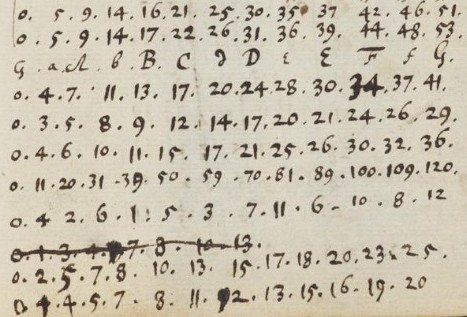 0. 5. 9. 14. 16. 21. 25. 30. 35. 37 42. 46. 51.
0. 5. 9. 14. 17. 22. 26. 31. 36. 39. 44. 48. 53.
G. a. A. b. B. C D E F f G.
0. 4. 7. 11. 13. 17. 20. 24. 28. 30. 34. 37. 41.
0. 3. 5. 8. 9. 12. 14. 17. 20. 21. 24. 26. 29.
0. 4. 6. 10. 11. 15. 17. 21. 25. 26. 30. 32. 36.
0. 11. 20. 31. 39. 50. 59. 70. 81. 89. 100. 109. 120.
0. 4 2. 6. 1. 5. 3. 7. 11. 6. 10. 8. 12
0. 1. 3. 4. 7. 8. 10. 13.
0. 2. 5. 7. 8. 10. 13. 15. 17. 18. 20. 23. 25.
4. 4. 5. 7. 8. 11. 12. 13. 15. 16. 19. 20